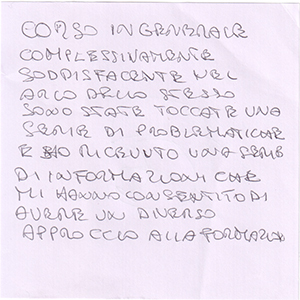 CORSO IN GENERALE
COMPLESSIVAMENTE
SODDISFACENTE NEL
ARCO DELLO STESSO
SONO STATE TOCCATE UNA
SERIE DI PROBLEMATICHE
E HO RICEVUTO UNA SERIE
DI INFORMAZIONI CHE
MI HANNO CONSENTITO DI
AVERE UN DIVERSO
APPROCCIO ALLA FORMAZIONE